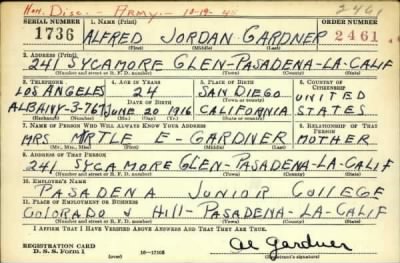 Hon. Disc. - Army. - 10-19-45 2461
SERIAL NUMBER 1. NAME (Print) ORDER NUMBER
1736 ALFRED JORDAN GARDNER 2461
(First) (Middle) (Last)
2. ADDRESS (Print)
241 SYCAMORE GLEN-PASADENA-LA-CALIF
(Number and street or R. F. D. number) (Town) (County) (State)
3. TELEPHONE 4. AGE IN YEARS 5. PLACE OF BIRTH 6. COUNTRY OF CITIZENSHIP
LOS ANGELES 24 SAN DIEGO UNITED
DATE OF BIRTH (Town or county)
ALBANY-3-767 JUNE 20 1916 CALIFORNIA STATES
7. NAME OF PERSON WHO WILL ALWAYS KNOW YOUR ADDRESS 8. RELATIONSHIP OF THAT PERSON
MRS MYRTLE E- GARDNER MOTHER
(Mr., Mrs., Miss) (First) (Middle) (Last)
9. ADDRESS OF THAT PERSON
241 SYCAMORE GLEN-PASADENA-LA-CALIF
(Number and street or R. F. D. number) (Town) (County) (State)
10. EMPLOYER'S NAME
PASADENA JUNIOR COLLEGE
11. PLACE OF EMPLOYMENT OR BUSINESS
COLORADO & Hill-PASADENA-LA-CALIF
(Number and street or R. F. D. number) (Town) (County) (State)
I AFFIRM THAT I HAVE VERIFIED ABOVE ANSWERS AND THAT THEY ARE TRUE.
REGISTRATION CARD
D. S. S. Form 1 16-17105 Al Gardner
(Registrant's signature)